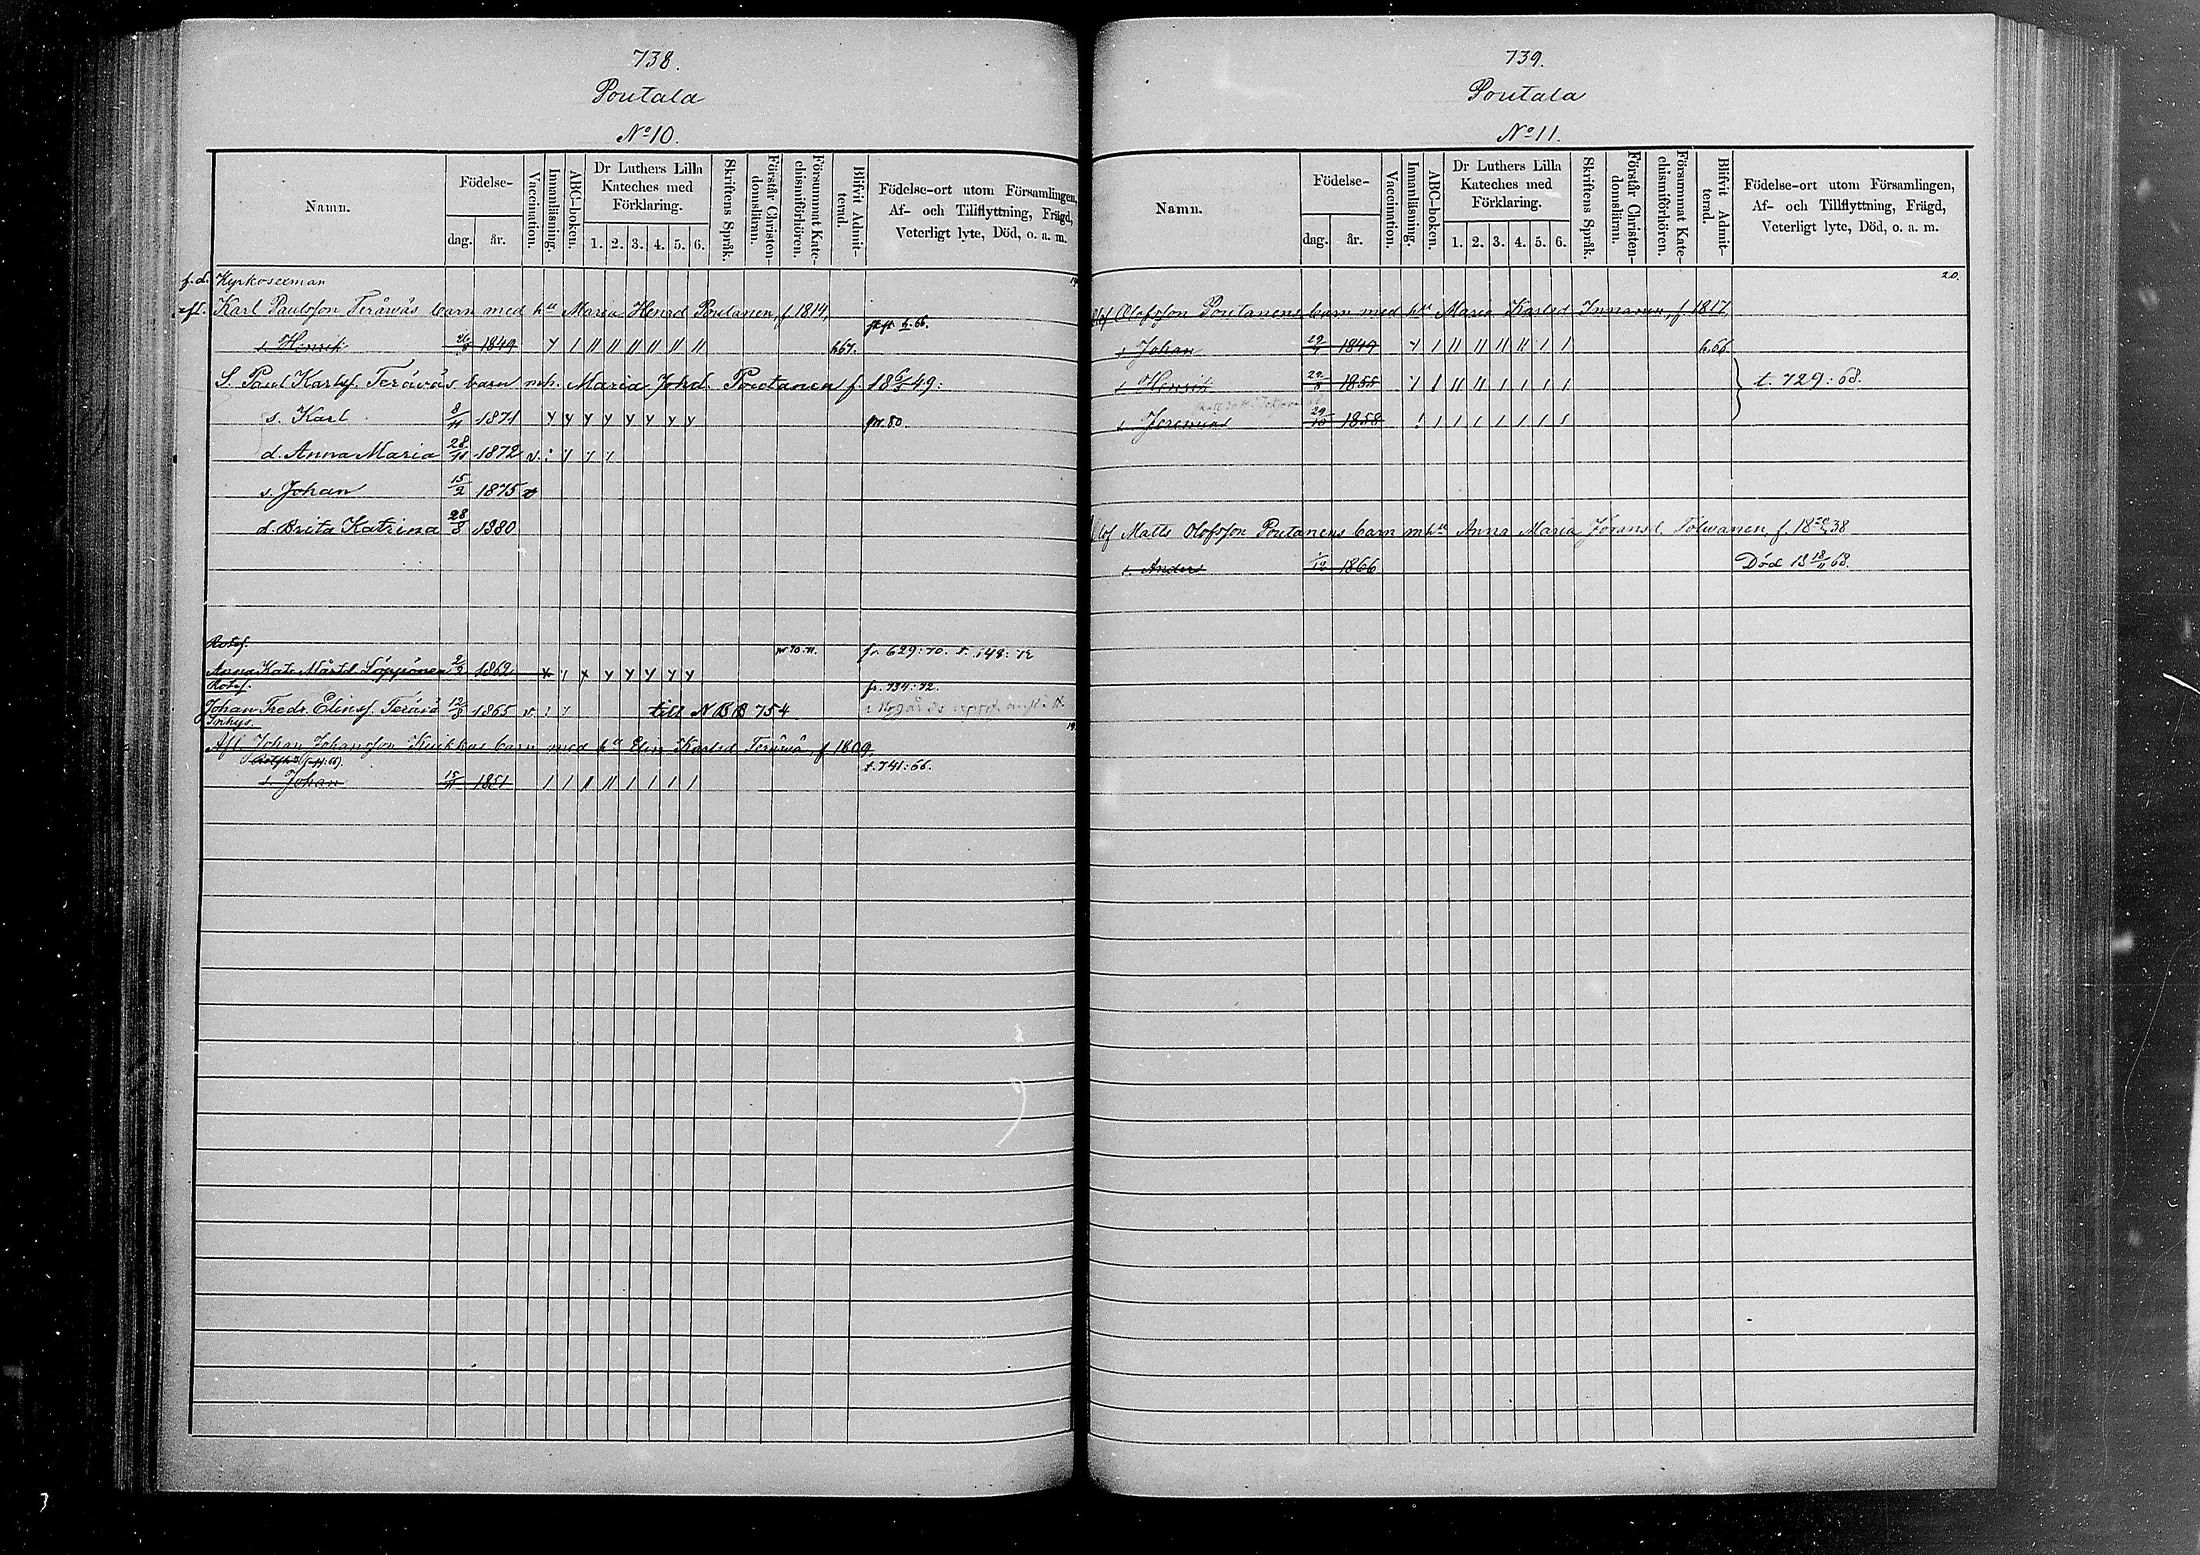 738.
Poutala
No 10.
Namn.
Födelse-
dag. år.
Vaccination.
Innanläsning.
ABC-boken.
Dr Luthers Lilla Kateches med Förklaring.
1. 2. 3. 4. 5. 6.
Skriftens Språk.
Förstår Christendomsläran.
Försummat Katechismiförhören.
Blifvit Admitterad.
Födelse-ort utom Församlingen,
Af- och Tillflyttning, Frägd,
Veterligt lyte, Död, o. a. m.
f. d. Kyrkosexman
afl. Karl Paulsson Teräwäs barn med hu Maria Henrd Poutanen, f 1814,
s. Henrik 1849 h 67.
S. Paul Karlsf. Teräväs barn mh. Maria Johd. Poutanen f. 18 6/3 49:
s. Karl 8/11 1871 y y y y y y y y pr. 80
d. Anna Maria 28/11 1872 v.
s. Johan 15/2 1875 v
d. Brita Katrina 28/8 1880
Rotef. fr. 629:70. t. 148:72
Anna Kata Mårtd Löppönen 2/2 1862
Rotef. fr. 734:72.
Johan Fredr. Elinsf. Terävä 12/3 1865 v till N BB 754
Inhys.
Afl Johan Johansson Kuikkas barn med hu Elin Karlsd Teräwä, f 1809
t. 741:66.
s. Johan 15/11 1851
739.
Poutala
No 11.
Namn.
Födelse-
dag. år.
Vaccination.
Innanläsning.
ABC-boken.
Dr Luthers Lilla Kateches med Förklaring.
1. 2. 3. 4. 5. 6.
Skriftens Språk.
Förstår Christendomsläran.
Försummat Katechismiförhören.
Blifvit Admitterad.
Födelse-ort utom Församlingen,
Af- och Tillflyttning, Frägd,
Veterligt lyte, Död, o. a. m.
20.
Olof Olofsson Poutanens barn med hu Maria Karlsd Innanen, f 1817
s. Johan 1849 h. 66
s. Henrik 1855 t. 729:68.
s. Jeremias 29/10 1858
Olof Matts Olofsson Poutanens barn m hu Anna Maria Göransd. Tolwanen, f. 18 38
s. Anders 1/12 1866 Död 18 18/11 68.